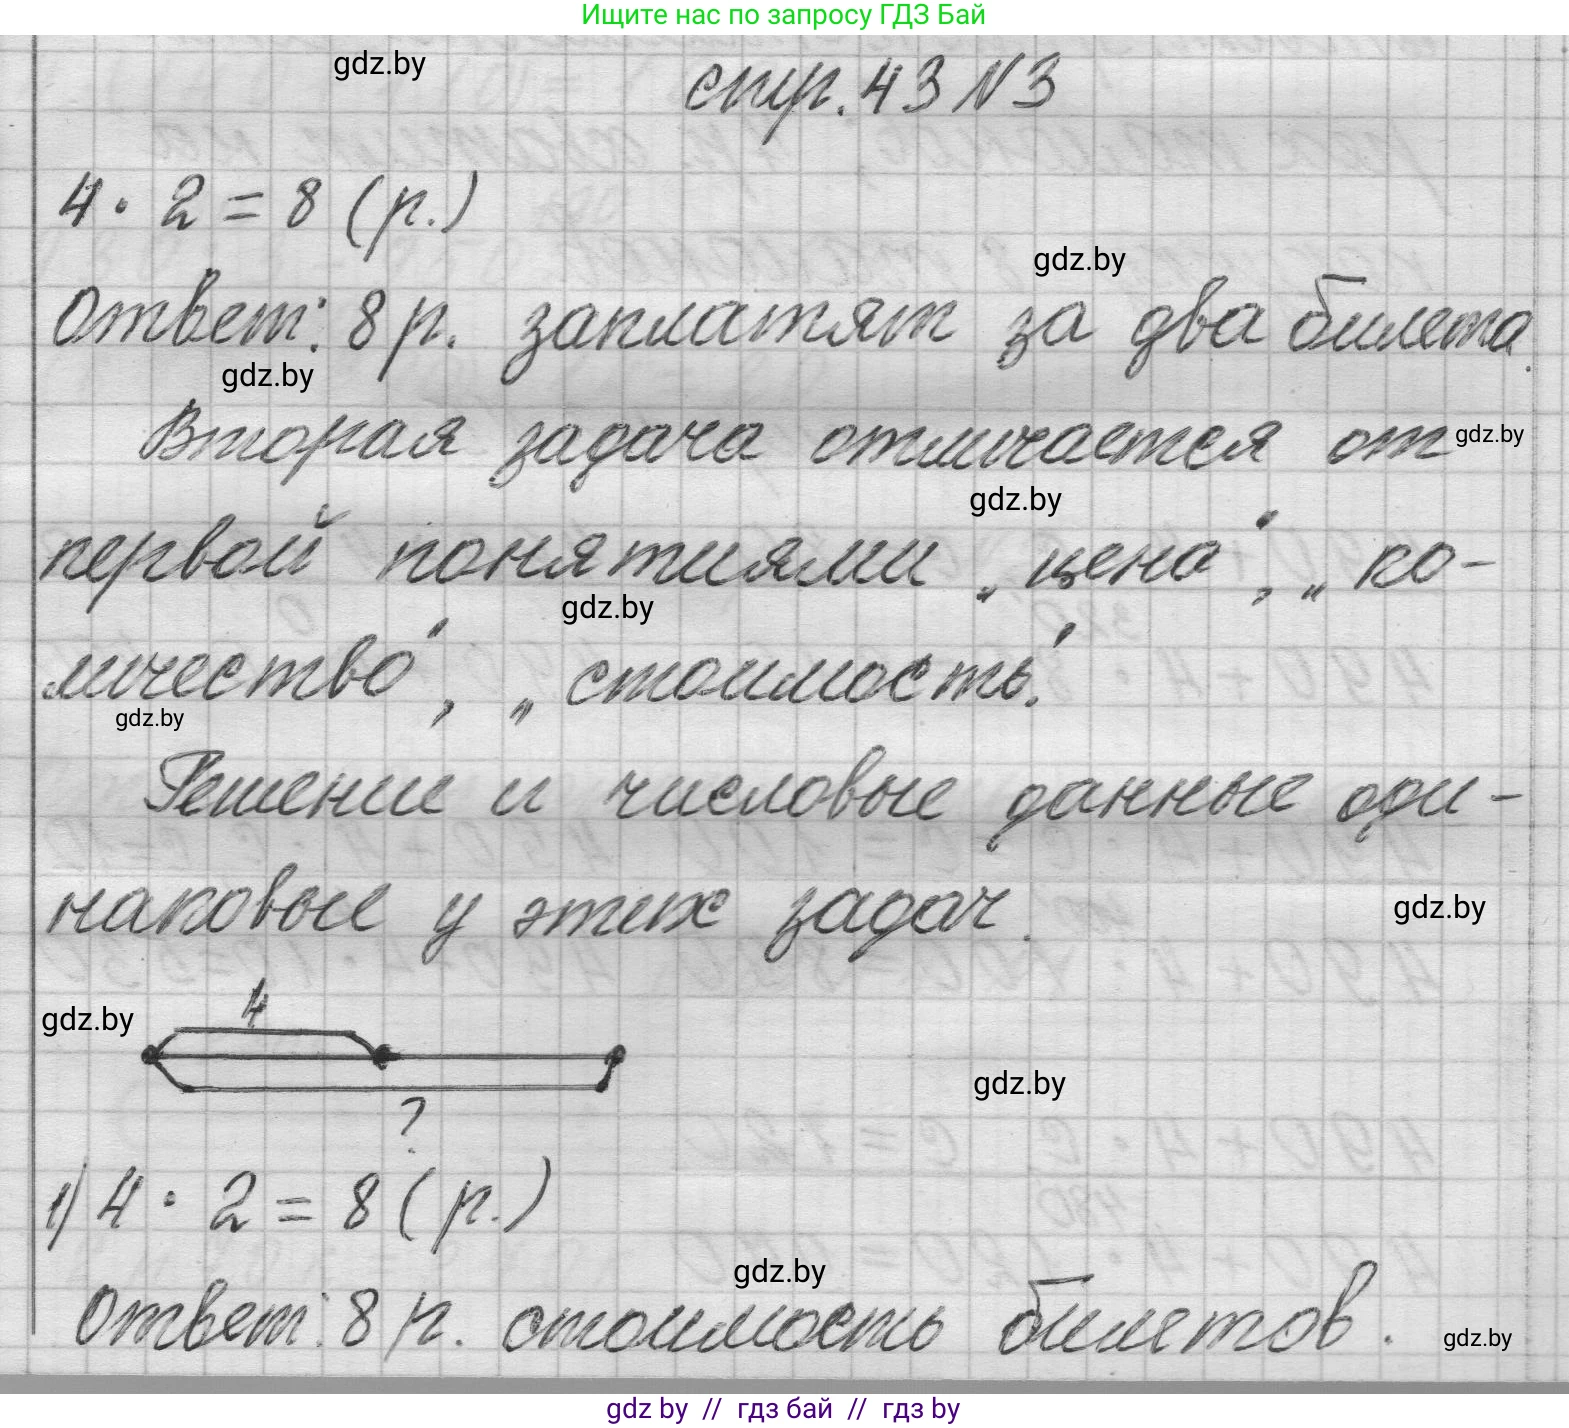 Ищите нас по запросу ГДЗ Бай
gdz.by
стр. 43 N 3
4 · 2 = 8 (р.)
gdz.by
Ответ: 8 р. заплатят за два билета.
gdz.by
Вторая задача отличается от
gdz.by
gdz.by
первой понятиями „цена", „ко-
gdz.by
личество", „стоимость".
gdz.by
Решение и числовые данные оди-
наковые у этих задач.
gdz.by
4
gdz.by
gdz.by
?
1) 4 · 2 = 8 (р.)
gdz.by
Ответ: 8 р. стоимость билетов.
gdz.by
gdz by // гдз бай // гдз by